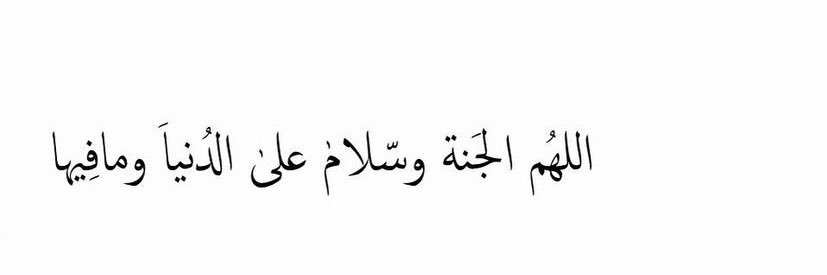 اللهُم الجَنة وسّلامٰ علىٰ الدُنياَ ومافِيها